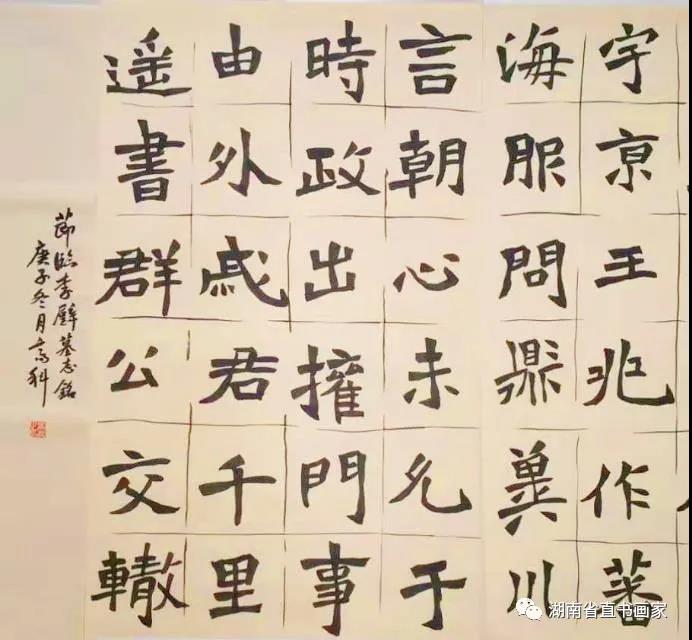 宇亰王兆作蕃
海服問鼎冀川
言朝心未允于
時政出擁門事
由外戚君千里
遥書群公交轍
節臨李璧墓志銘
庚子冬月
湖南省直书画家